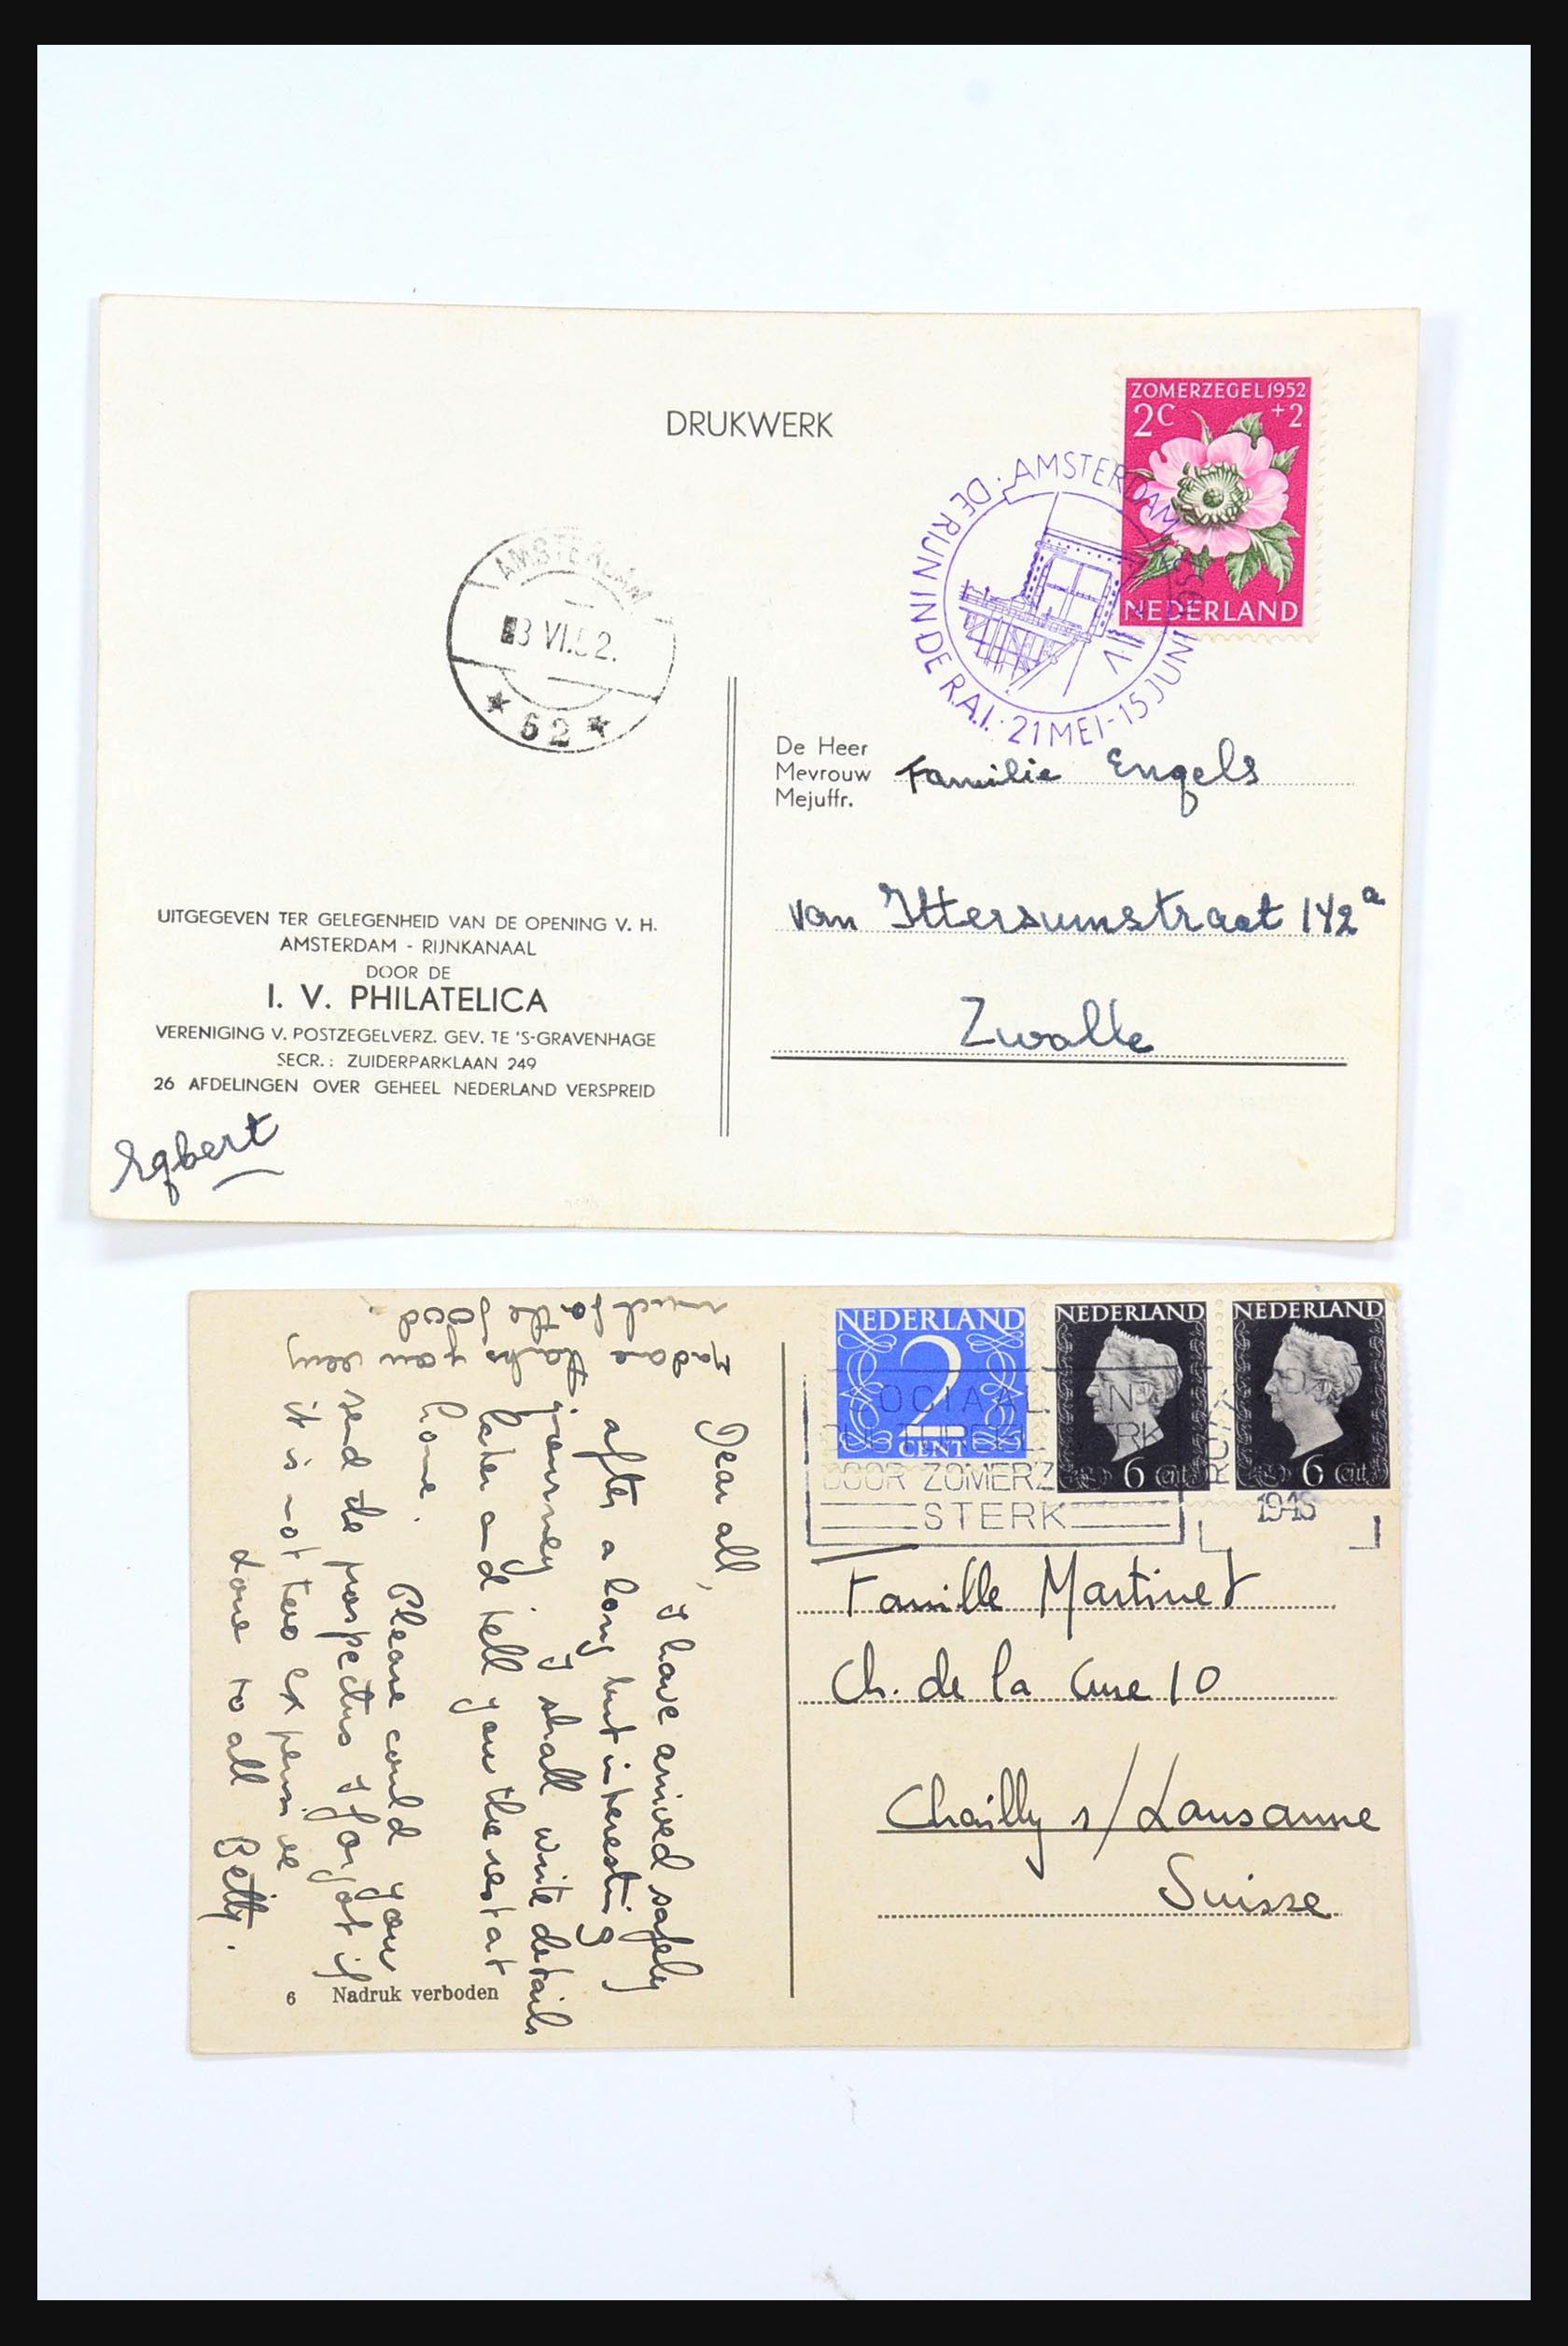 DRUKWERK
ZOMERZEGEL 1952
2C +2
NEDERLAND
AMSTERDAM
DE RIJN IN DE R.A.I. · 21 MEI - 15 JUNI
AMSTERDAM
3 VI.52.
* 52 *
De Heer
Mevrouw
Mejuffr.
Familie Engels
van Ittersumstraat 142a
Zwolle
UITGEGEVEN TER GELEGENHEID VAN DE OPENING V. H.
AMSTERDAM - RIJNKANAAL
DOOR DE
I. V. PHILATELICA
VERENIGING V. POSTZEGELVERZ. GEV. TE 'S-GRAVENHAGE
SECR.: ZUIDERPARKLAAN 249
26 AFDELINGEN OVER GEHEEL NEDERLAND VERSPREID
Egbert
NEDERLAND
2
CENT
NEDERLAND
6 Cent
NEDERLAND
6 Cent
SOCIAAL EN
CULTUREEL WERK
DOOR ZOMERZ
STERK
Famille Martinet
Ch. de la Cure 10
Chailly s/Lausanne
Suisse
Dear all,
I have arrived safely
after a long but interesting
journey. I shall write details
later and tell you the rest at
home.
Please could you
send the prospectus I forgot if
it is not too expensive
love to all Betty.
thank you very
much for the food
6 Nadruk verboden